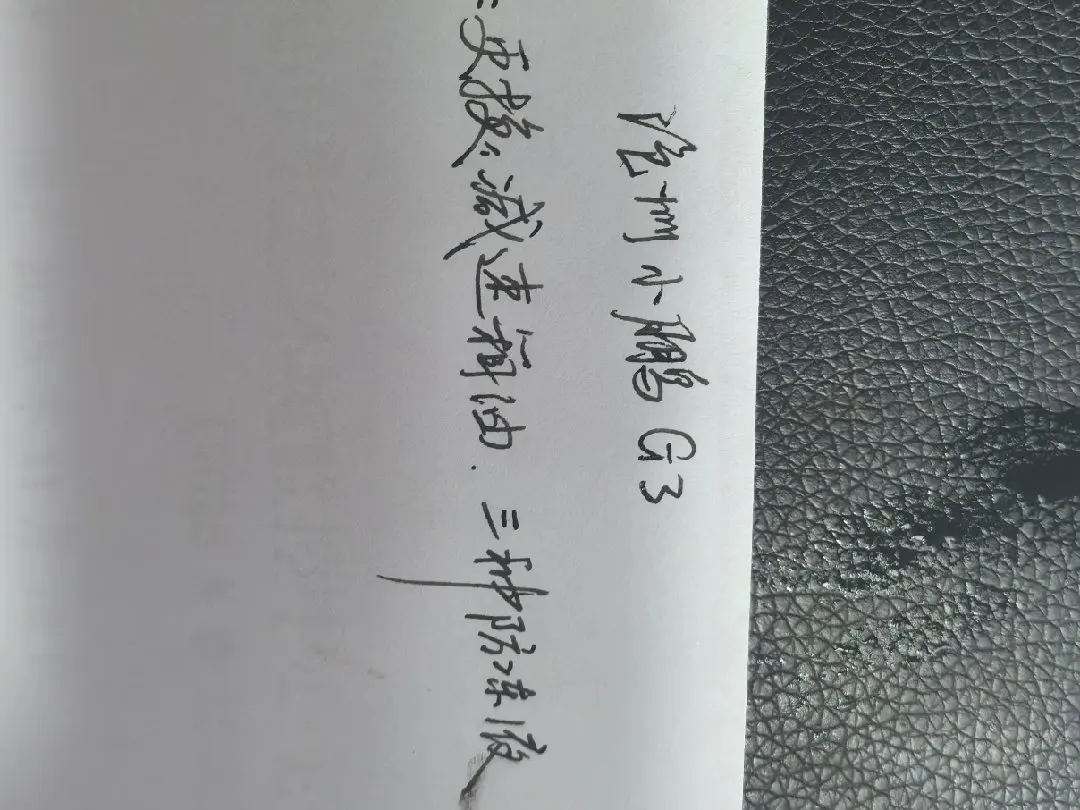 沧州小鹏G3
更换:减速箱油.三种防冻液